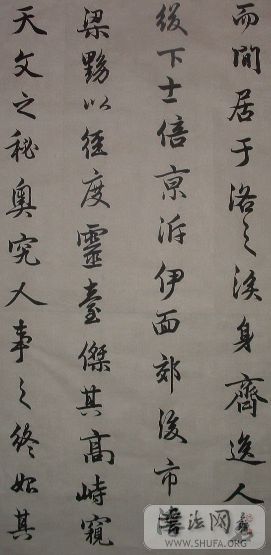 而閒居于洛之涘身齊逸人
級下士俉京泝伊面郊後市
梁黝以徑度靈臺傑其高峙窺
天文之秘奧究人事之終始其
書法网
WWW.SHUFA.ORG